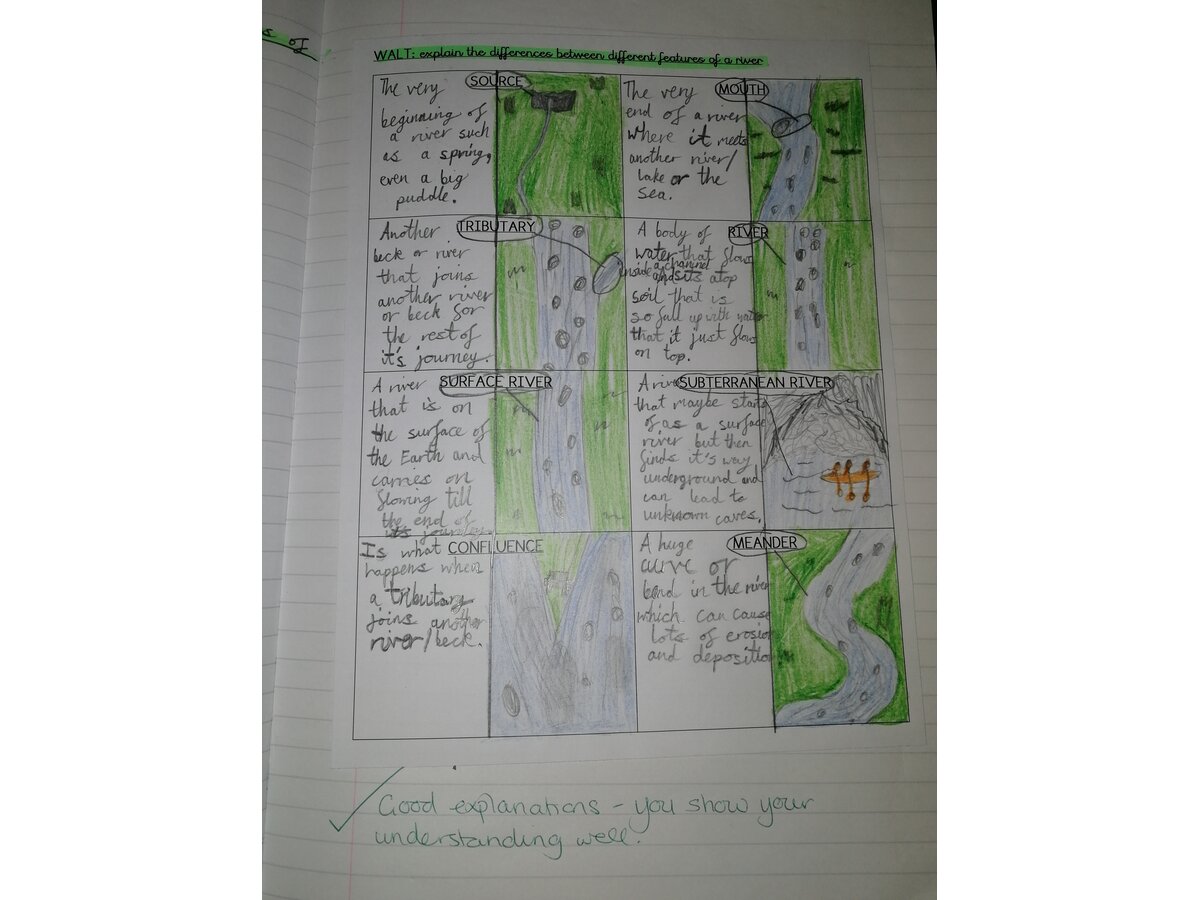 s of
WALT: explain the differences between different features of a river
SOURCE
The very
beginning of
a river such
as a spring,
even a big
puddle.
MOUTH
The very
end of a river
where it meets
another river/
lake or the
sea.
TRIBUTARY
Another
beck or river
that joins
another river
or beck for
the rest of
it's journey.
RIVER
A body of
water that flows
inside a channel
and sits atop
soil that is
so full up with water
that it just flows
on top.
SURFACE RIVER
A river
that is on
the surface of
the Earth and
carries on
flowing till
the end of
its journey.
SUBTERRANEAN RIVER
A river
that maybe starts
of as a surface
river but then
finds it's way
underground and
can lead to
unknown caves.
CONFLUENCE
Is what
happens when
a tributary
joins another
river/beck.
MEANDER
A huge
curve or
bend in the river
which can cause
lots of erosion
and deposition
Good explanations - you show your
understanding well.